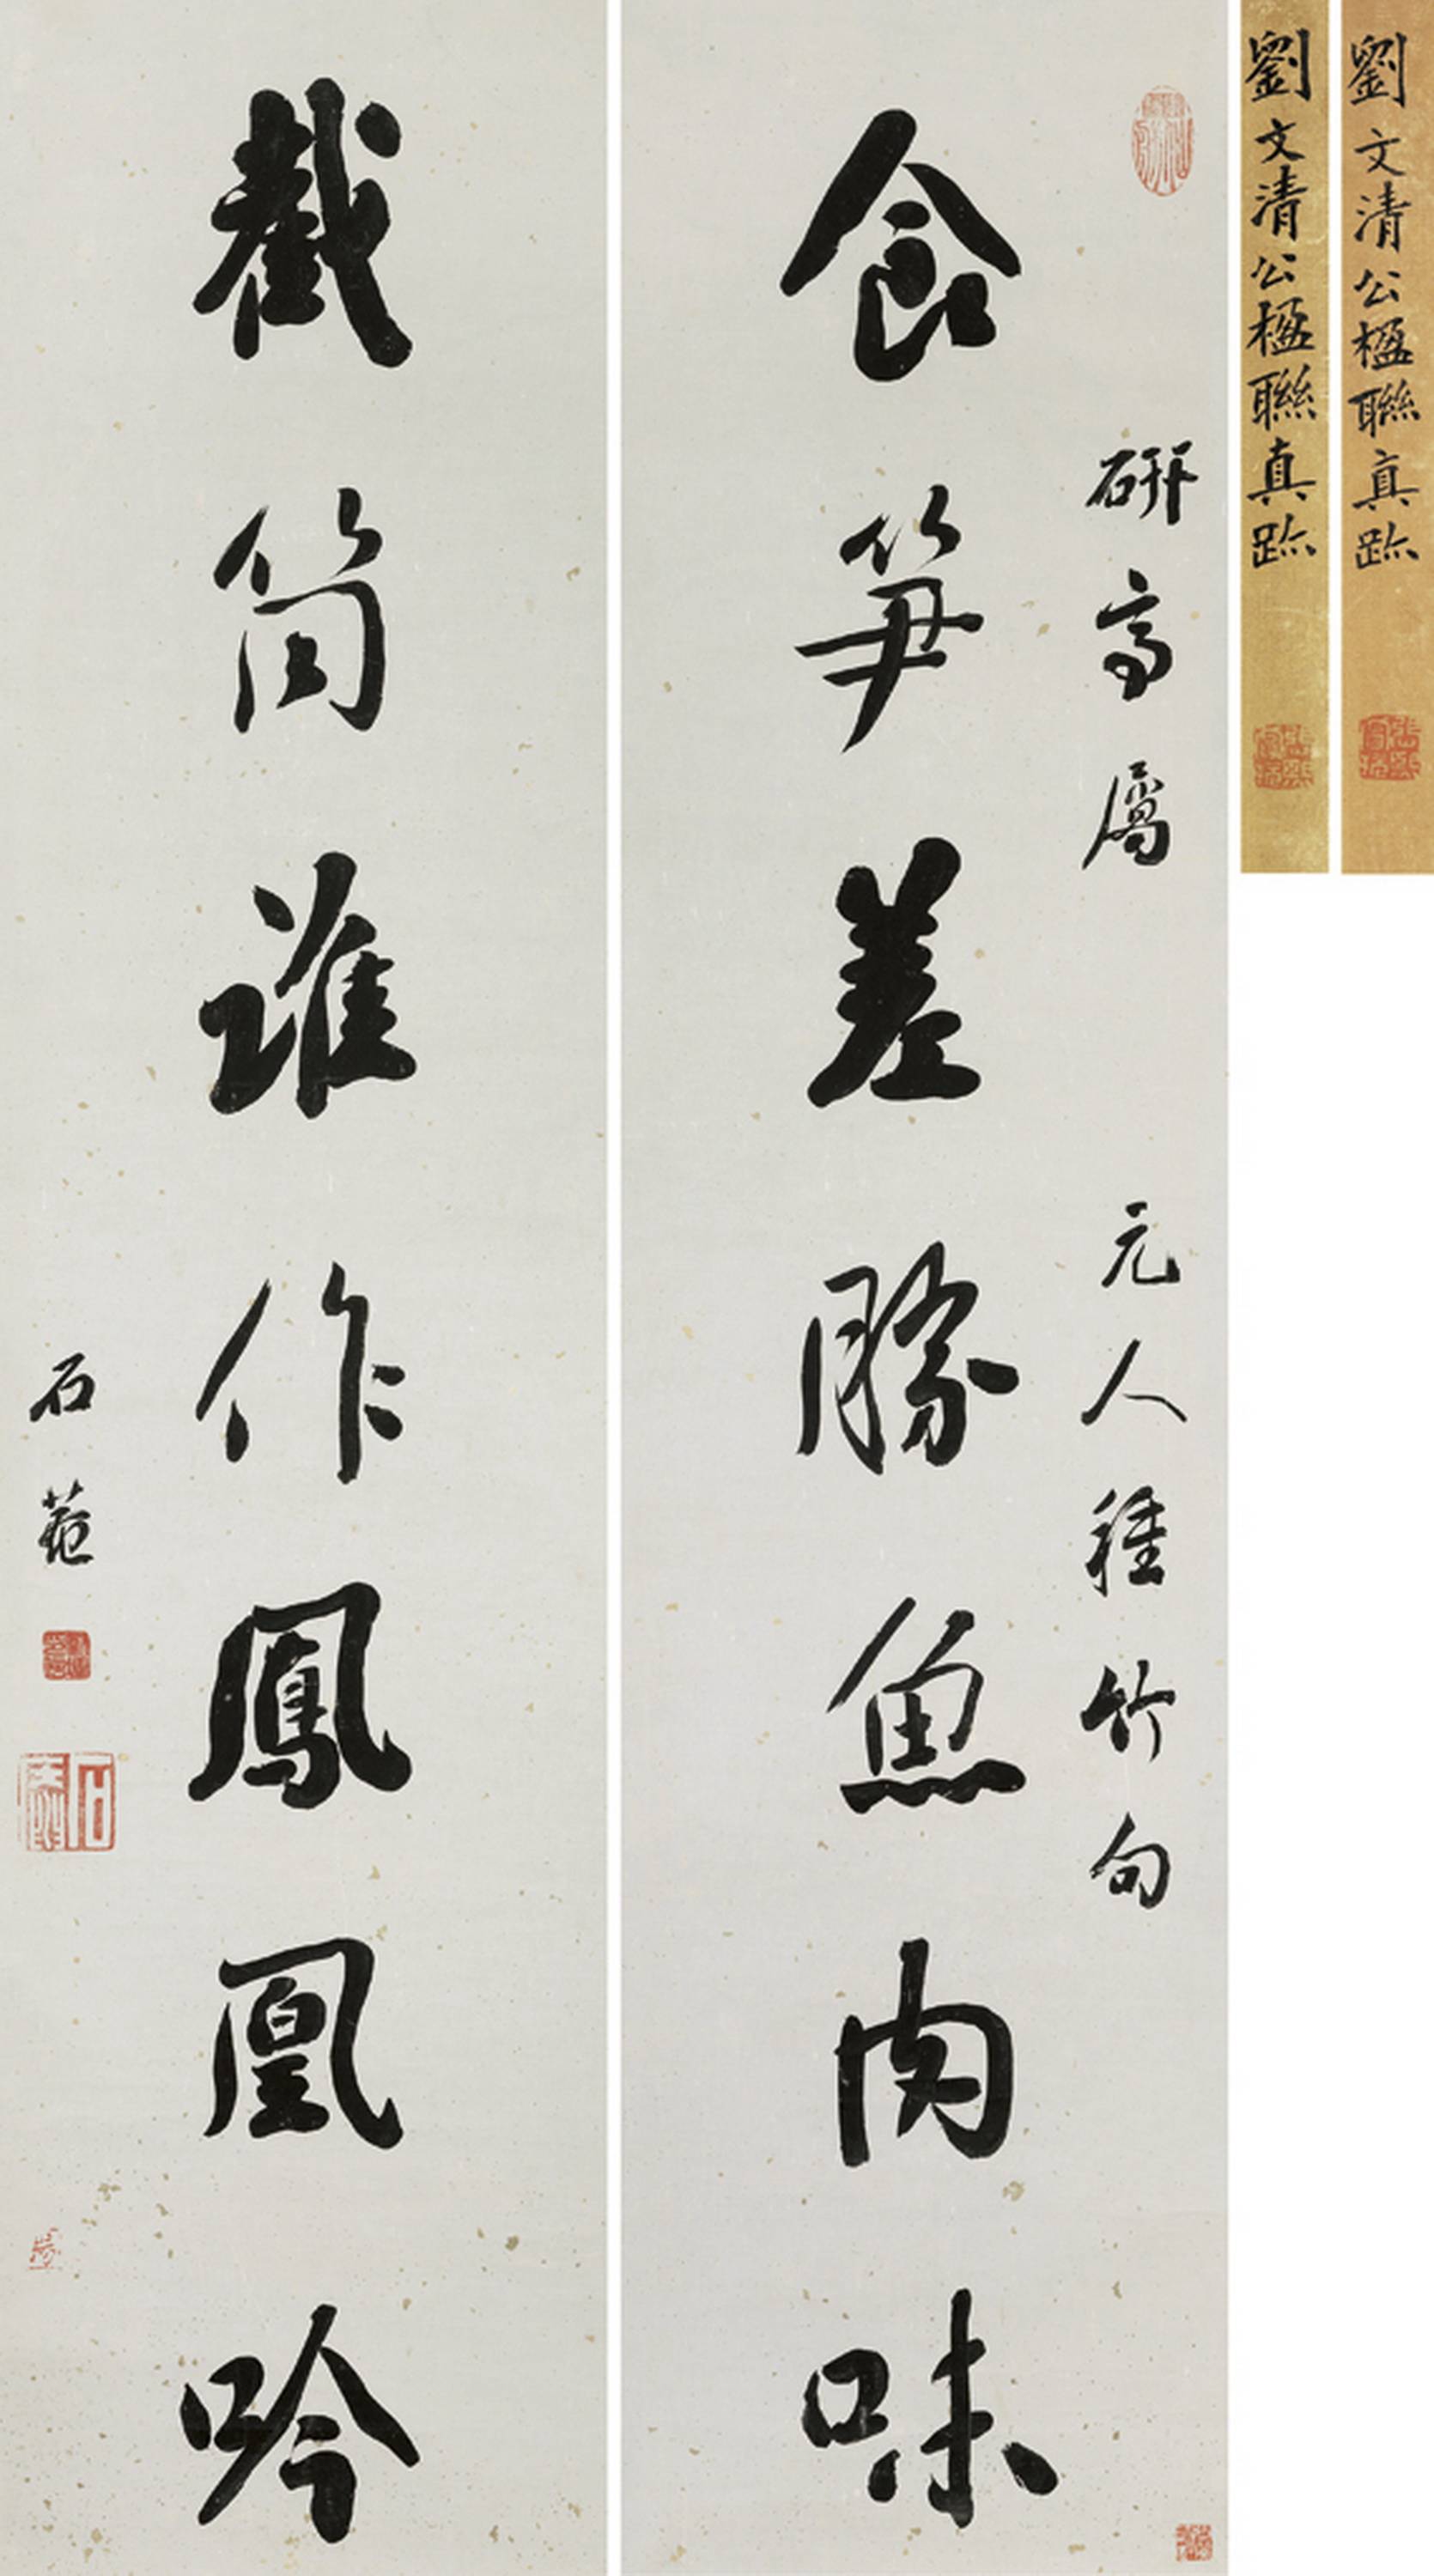 劉文清公楹聯真跡
劉文清公楹聯真跡
研亭屬
元人種竹句
食笋差勝魚肉味
截筒誰作鳳凰吟
石菴